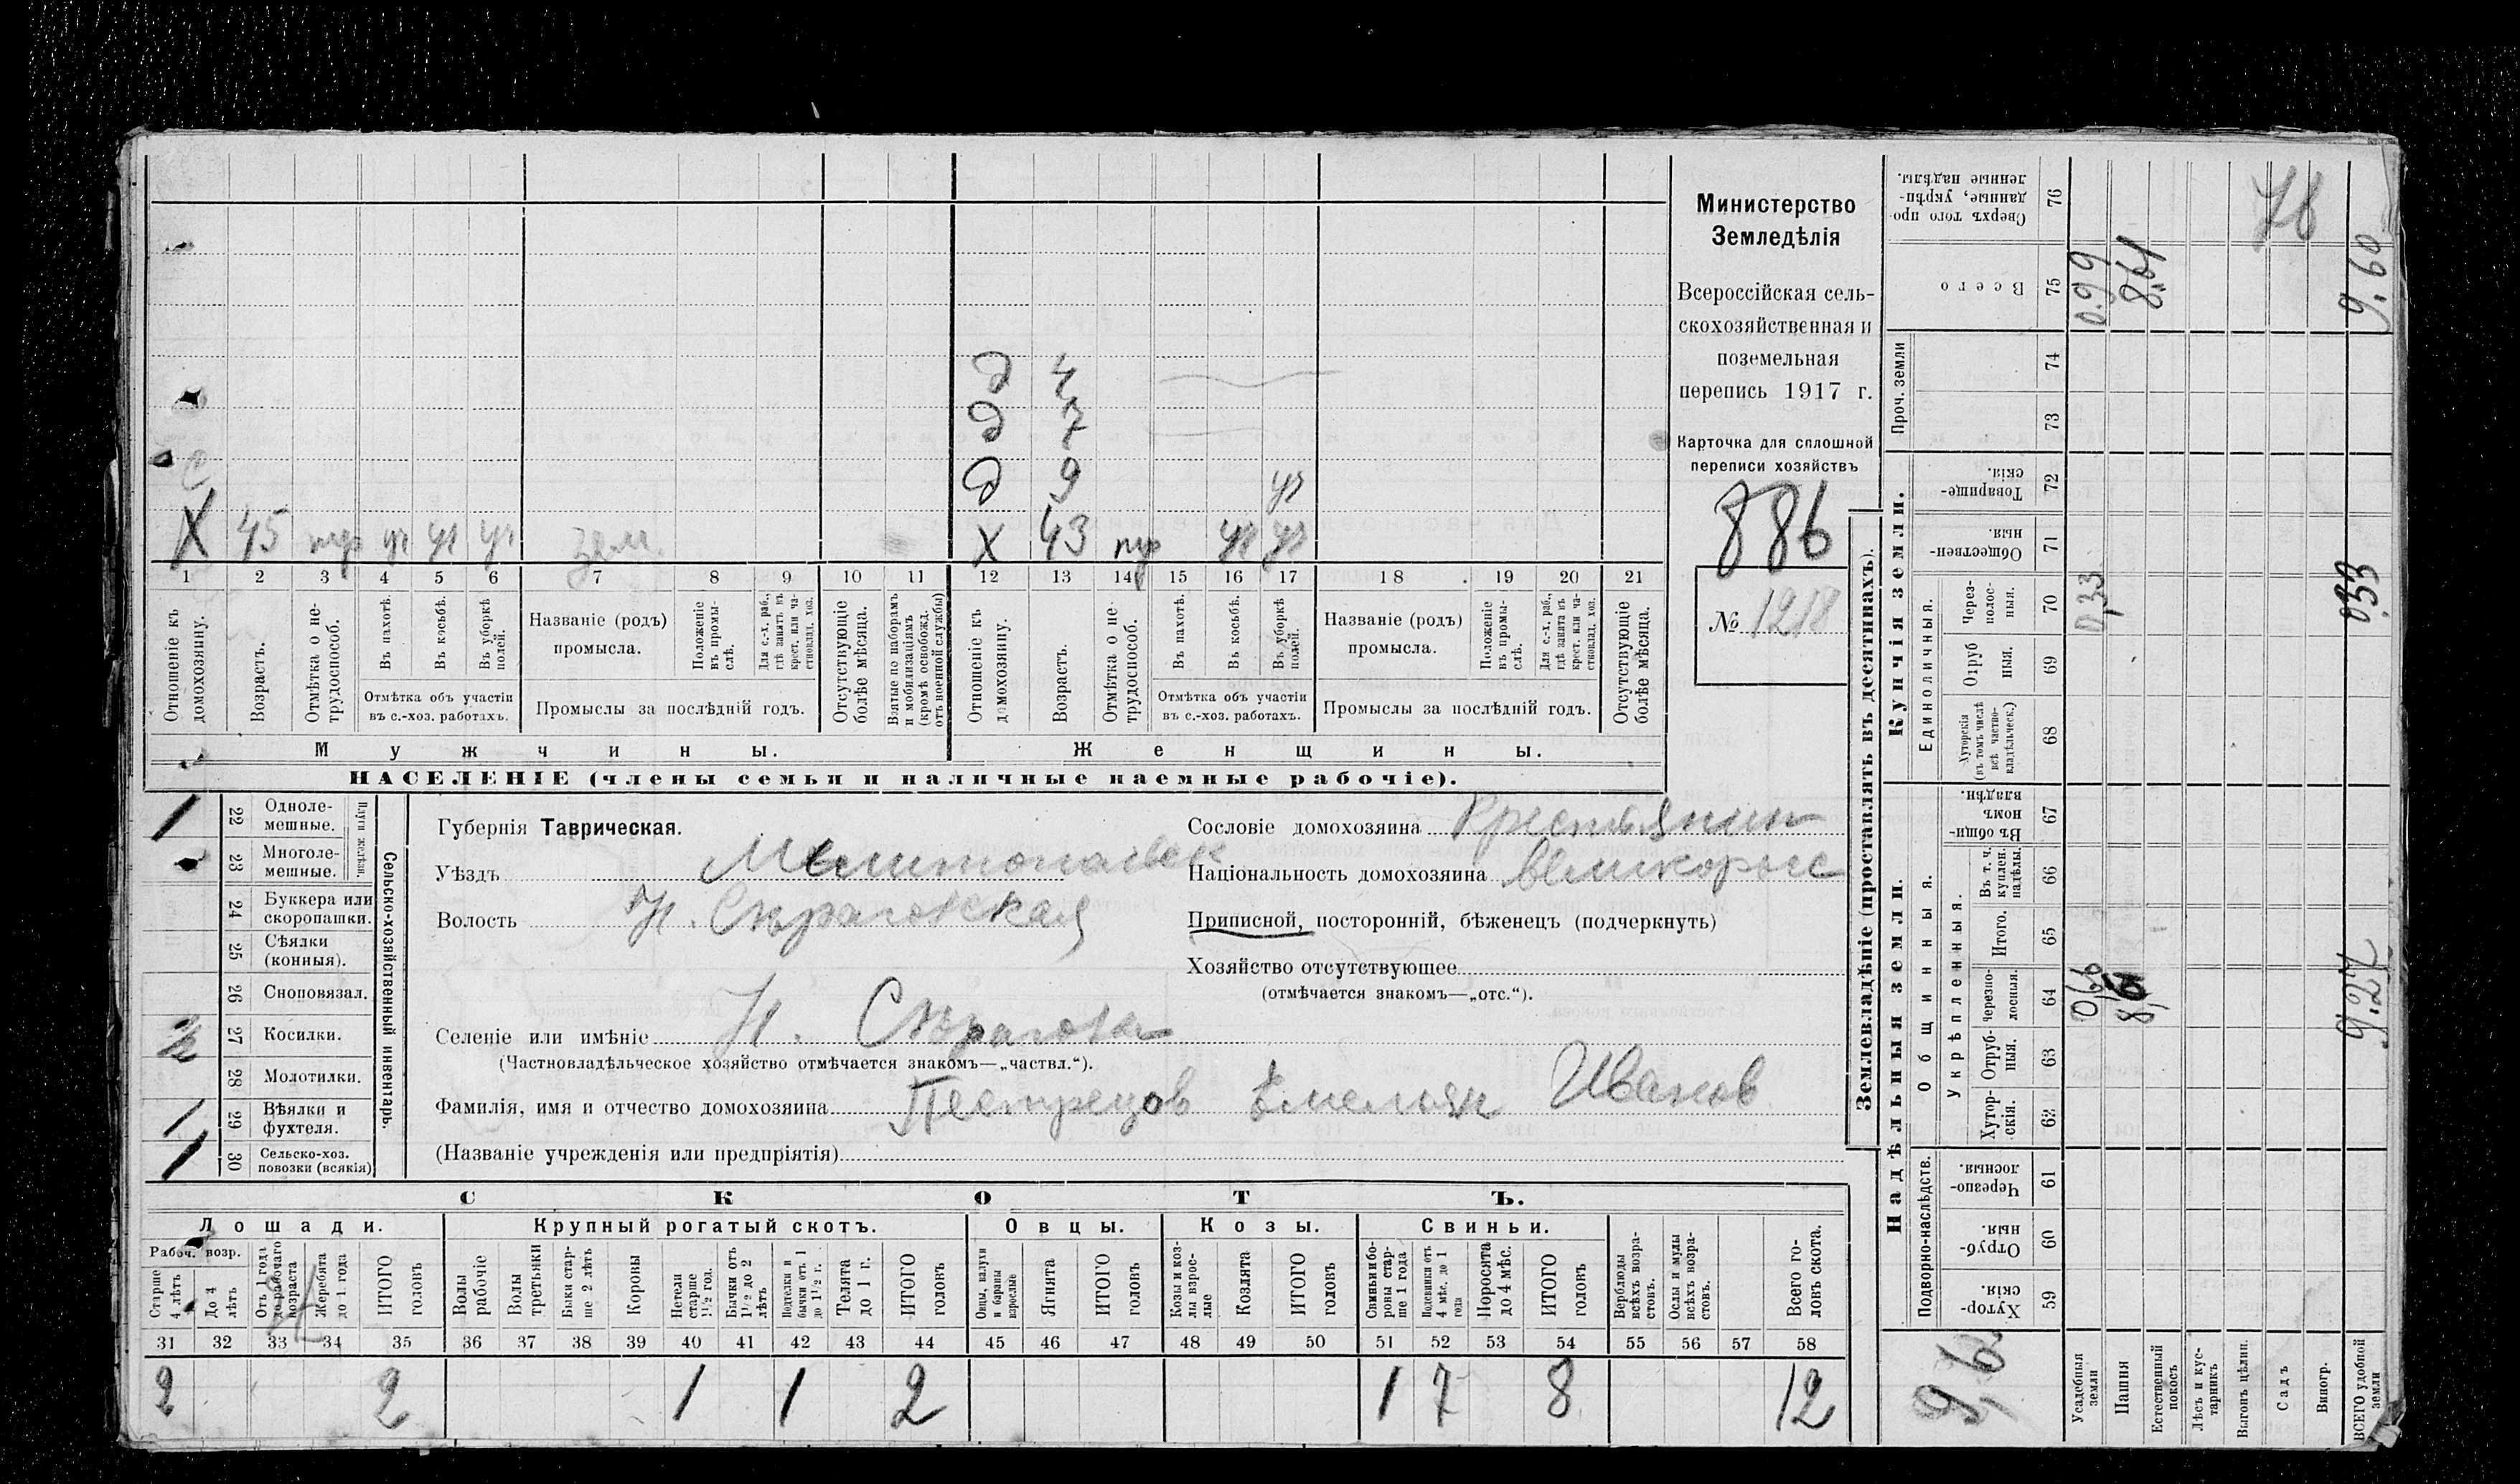 д 4
д 7
с
д 9 уч
X 45 тр уч уч уч зем. X 43 тр уч уч
1 2 3 4 5 6 7 8 9 10 11 12 13 14 15 16 17 18 19 20 21
Отношеніе къ домохозяину.
Возрастъ.
Отмѣтка о нетрудоспособ.
Въ пахотѣ.
Въ косьбѣ.
Въ уборкѣ полей.
Отмѣтка объ участіи
въ с.-хоз. работахъ.
Названіе (родъ)
промысла.
Положеніе въ промыслѣ.
Для с.-х. раб., гдѣ занятъ въ крест. или частновлад. хоз.
Промыслы за послѣдній годъ.
Отсутствующіе болѣе мѣсяца.
Взятые по наборамъ и мобилизаціямъ (кромѣ освобожд. отъ военной службы)
Отношеніе къ домохозяину.
Возрастъ.
Отмѣтка о нетрудоспособ.
Въ пахотѣ.
Въ косьбѣ.
Въ уборкѣ полей.
Отмѣтка объ участіи
въ с.-хоз. работахъ.
Названіе (родъ)
промысла.
Положеніе въ промыслѣ.
Для с.-х. раб., гдѣ занята въ крест. или частновлад. хоз.
Промыслы за послѣдній годъ.
Отсутствующіе болѣе мѣсяца.
Мужчины. Женщины.
НАСЕЛЕНІЕ (члены семьи и наличные наемные рабочіе).
Министерство
Земледѣлія
Всероссійская сель-
скохозяйственная и
поземельная
перепись 1917 г.
Карточка для сплошной
переписи хозяйствъ
886
№ 1218
1 22 Одноле-
мешные.
23 Многоле-
мешные.
Плуги желѣзн.
24 Буккера или
скоропашки.
25 Сѣялки
(конныя).
26 Сноповязал.
1/2 27 Косилки.
28 Молотилки.
1 29 Вѣялки и
фухтеля.
1 30 Сельско-хоз.
повозки (всякія)
Сельско-хозяйственный инвентарь.
Губернія Таврическая.
Уѣздъ Мелитопольск
Волость Н. Сѣрагозская
Селеніе или имѣніе Н. Сѣрагозы
(Частновладѣльческое хозяйство отмѣчается знакомъ—„частвл.“).
Фамилія, имя и отчество домохозяина Пестрецов Емельян Иванов
(Названіе учрежденія или предпріятія)
Сословіе домохозяина Крестьянин
Національность домохозяина великоросс
Приписной, посторонній, бѣженецъ (подчеркнуть)
Хозяйство отсутствующее
(отмѣчается знакомъ—„отс.“).
СКОТЪ.
Лошади. Крупный рогатый скотъ. Овцы. Козы. Свиньи.
Рабоч. возр.
Старше 4 лѣтъ
До 4 лѣтъ
Отъ 1 года до рабочаго возраста
Жеребята до 1 года
ИТОГО головъ
Волы рабочіе
Волы третьяки
Быки старше 2 лѣтъ
Коровы
Нетели старше 1½ год.
Бычки отъ 1½ до 2 лѣтъ
Подтелки и бычки отъ 1 до 1½ г.
Телята до 1 г.
ИТОГО головъ
Овцы, валухи и бараны взрослые
Ягнята
ИТОГО головъ
Козы и козлы взрослые
Козлята
ИТОГО головъ
Свиньи и боровы старше 1 года
Подсвинки отъ 4 мѣс. до 1 года
Поросята до 4 мѣс.
ИТОГО головъ
Верблюды всѣхъ возрастовъ.
Ослы и мулы всѣхъ возрастовъ.
Всего головъ скота.
31 32 33 34 35 36 37 38 39 40 41 42 43 44 45 46 47 48 49 50 51 52 53 54 55 56 57 58
2 2 1 1 2 1 7 8 12
Землевладѣніе (проставлять въ десятинахъ).
Надѣльныя земли. Купчія земли.
Подворно-наслѣдств. Общинныя. Укрѣпленныя. Единоличныя. Проч. земли
59 Хуторскія.
60 Отрубныя.
61 Черезполосныя.
62 Хуторскія.
63 Отрубныя.
64 Черезполосныя.
65 Итого.
66 Въ т. ч. куплен. надѣлы.
67 Въ общинномъ владѣн.
68 Хуторскія (въ томъ числѣ всѣ частновладѣльческ.)
69 Отрубныя.
70 Черезполосныя.
71 Общественныя.
72 Товарищескія.
73
74
75 Всего
76 Сверхъ того проданные, укрѣпленные надѣлы.
Усадебныя земли 0,66 0,33 0.99
Пашня 8,61 8.61
Естественный покосъ
Лѣсъ и кустарникъ
Выгонъ цѣлин.
Садъ
Виногр.
ВСЕГО удобной земли 9.27 0.33 9.60
78
9,6